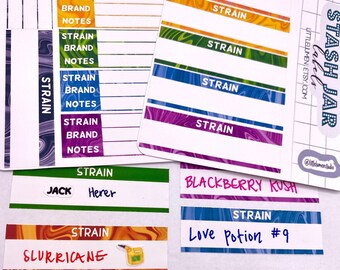 STRAIN
BRAND
NOTES
STRAIN
BRAND
NOTES
STRAIN
BRAND
NOTES
STRAIN
BRAND
NOTES
STRAIN
STRAIN
STRAIN
STRAIN
STRAIN
STASH JAR
labels
STRAIN
JACK Herer
STRAIN
SLURRICANE
BLACKBERRY KUSH
STRAIN
Love Potion #9